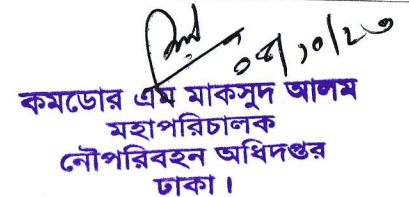 ০৪/১০/২৩
কমডোর এম মাকসুদ আলম
মহাপরিচালক
নৌপরিবহন অধিদপ্তর
ঢাকা।